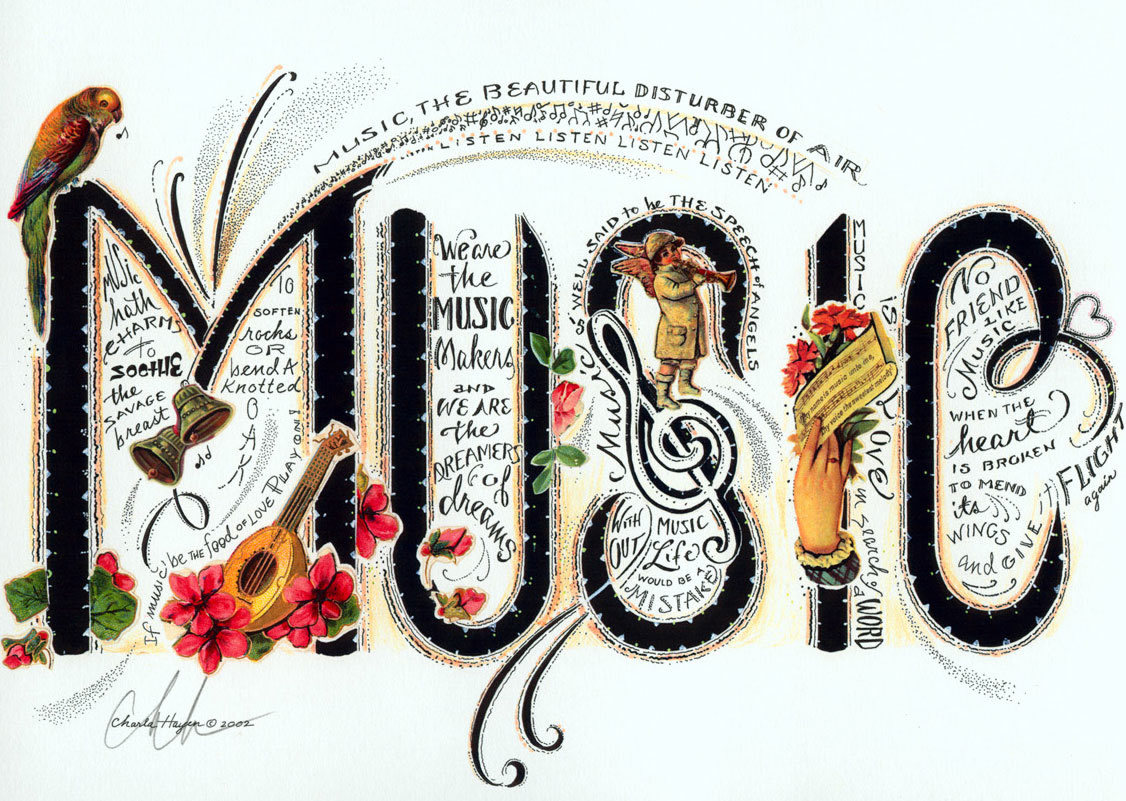 MUSIC, THE BEAUTIFUL DISTURBER OF AIR
LISTEN LISTEN LISTEN LISTEN
MUSIC
MUSIC
hath
CHARMS
to
SOOTHE
the
SAVAGE
breast
TO
SOFTEN
rocks
OR
bend A
Knotted
OAK
If music be THE food OF LOVE PLAY ON!
We are
the
MUSIC
Makers
AND
WE ARE
the
DREAMERS
of
dreams
Music is WELL SAID to be THE SPEECH of ANGELS
WITH
OUT
MUSIC
Life
WOULD BE A
MISTAKE
MUSIC is LOVE in search of a WORD
thy name is music unto me,
thy voice the sweetest melody
NO
FRIEND
LIKE
Music
WHEN THE
heart
IS BROKEN
TO MEND
its
WINGS
and GIVE
FLIGHT
again
Charla Hayen © 2002